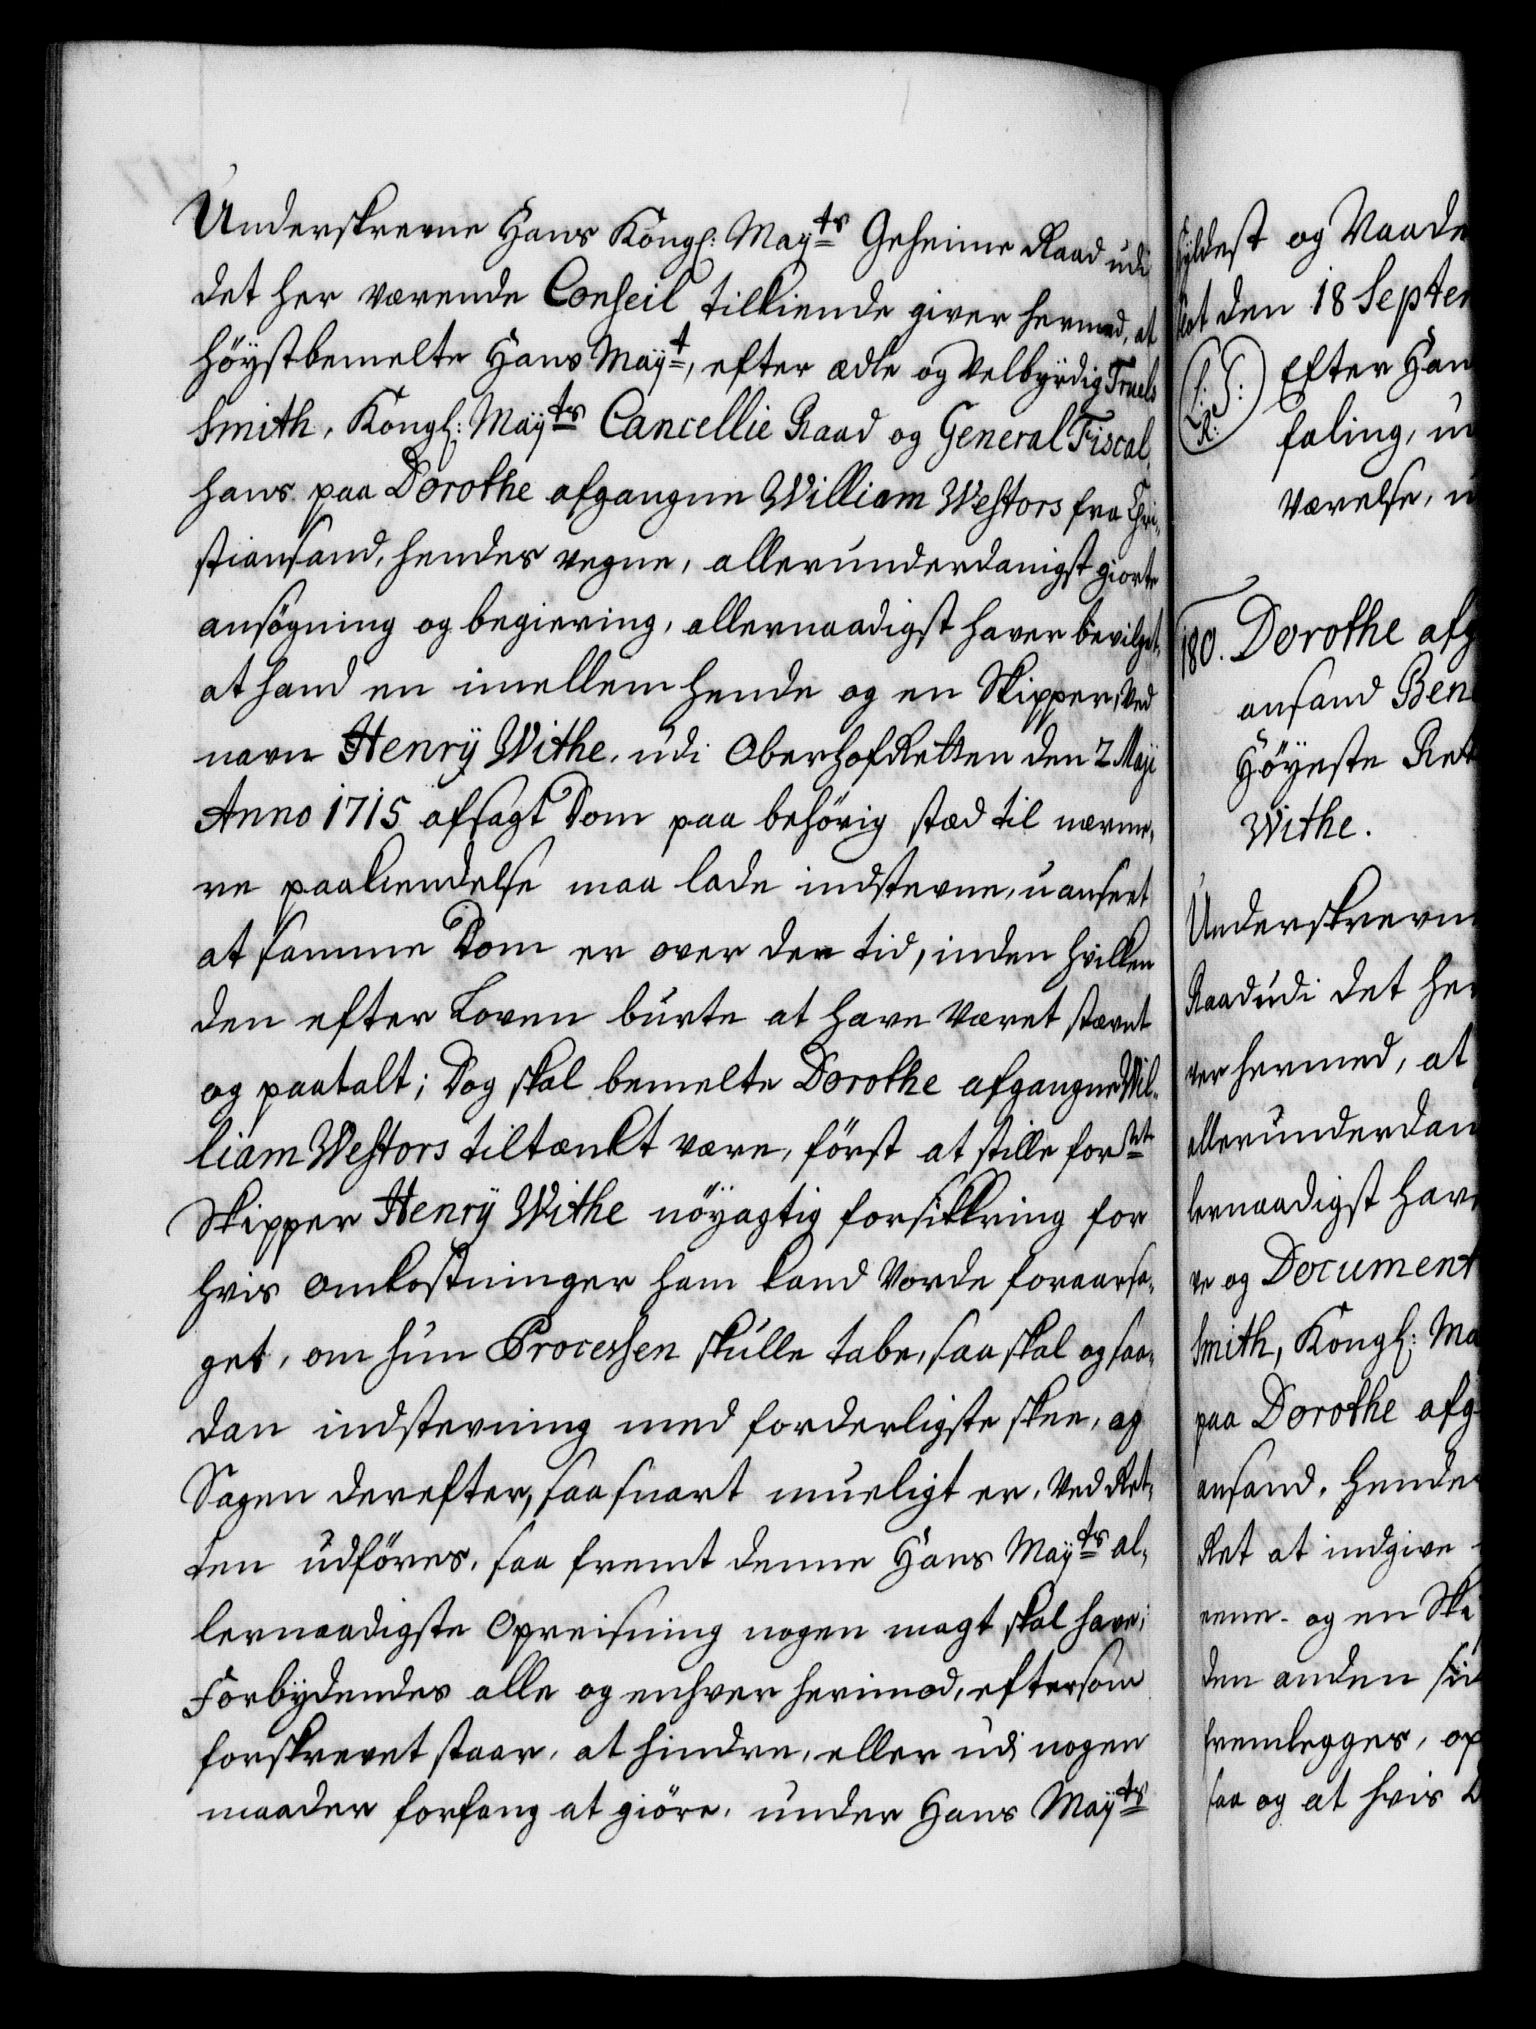 Underskrevne Hans Kongl: Mayts Geheime Raad udi
det her værende Conseil tilkiende giver hermed, at
höystbemelte Hans Mayt, efter ædle og Velbyrdig Truels
Smith, Kongl: Mayts Cancellie Raad og General Fiscal,
hans paa Dorothe afgangne William Westors fra Chri-
stiansand, hendes vegne, allerunderdanigst giorte
ansögning og begiering, allernaadigst haver bevilget,
at hand en imellem hende og en Skipper, ved
navn Henrÿ Withe, udi Oberhofdretten den 2 Maji
Anno 1715 afsagt Dom paa behörig stæd til nærme-
re paakiendelse maa lade indstevne, uanseet
at samme Dom er over den tid, inden hvilken
den efter Loven burte at have været stævnt
og paatalt; Dog skal bemelte Dorothe afgangne Wil-
liam Westors tiltænkt være, först at stille forn̄te
Skipper Henrÿ Withe nöÿagtig forsikkring for
hvis omkostninger ham kand vorde foraarsa-
get, om hun Processen skulle tabe, saa skal og saa-
dan indstevning med forderligste skee, og
Sagen derefter, saa snart mueligt er, ved Ret-
ten udföres, saa fremt denne Hans Maÿts al-
lernaadigste Opreisning nogen magt skal have;
Forbydendes alle og enhver herimod, eftersom
forskrevet staar, at hindre, eller udi nogen
maader forfang at giöre, under Hans Maÿts
hyldest og Naade
Slot den 18 Septem
L: S:
R:
Efter Han
faling, u
værelse, u
180. Dorothe afg
ansand Ben
Höÿeste Ret
Withe.
Underskrevne
Raad udi det her
ver hermed, at
allerunderdan
lernaadigst hav
ve og Document
Smith, Kongl: Ma
paa Dorothe afg
ansand, hendes
Ret at indgive
eene- og en Ski
den anden si
fremlegges, op
saa og at hvis D